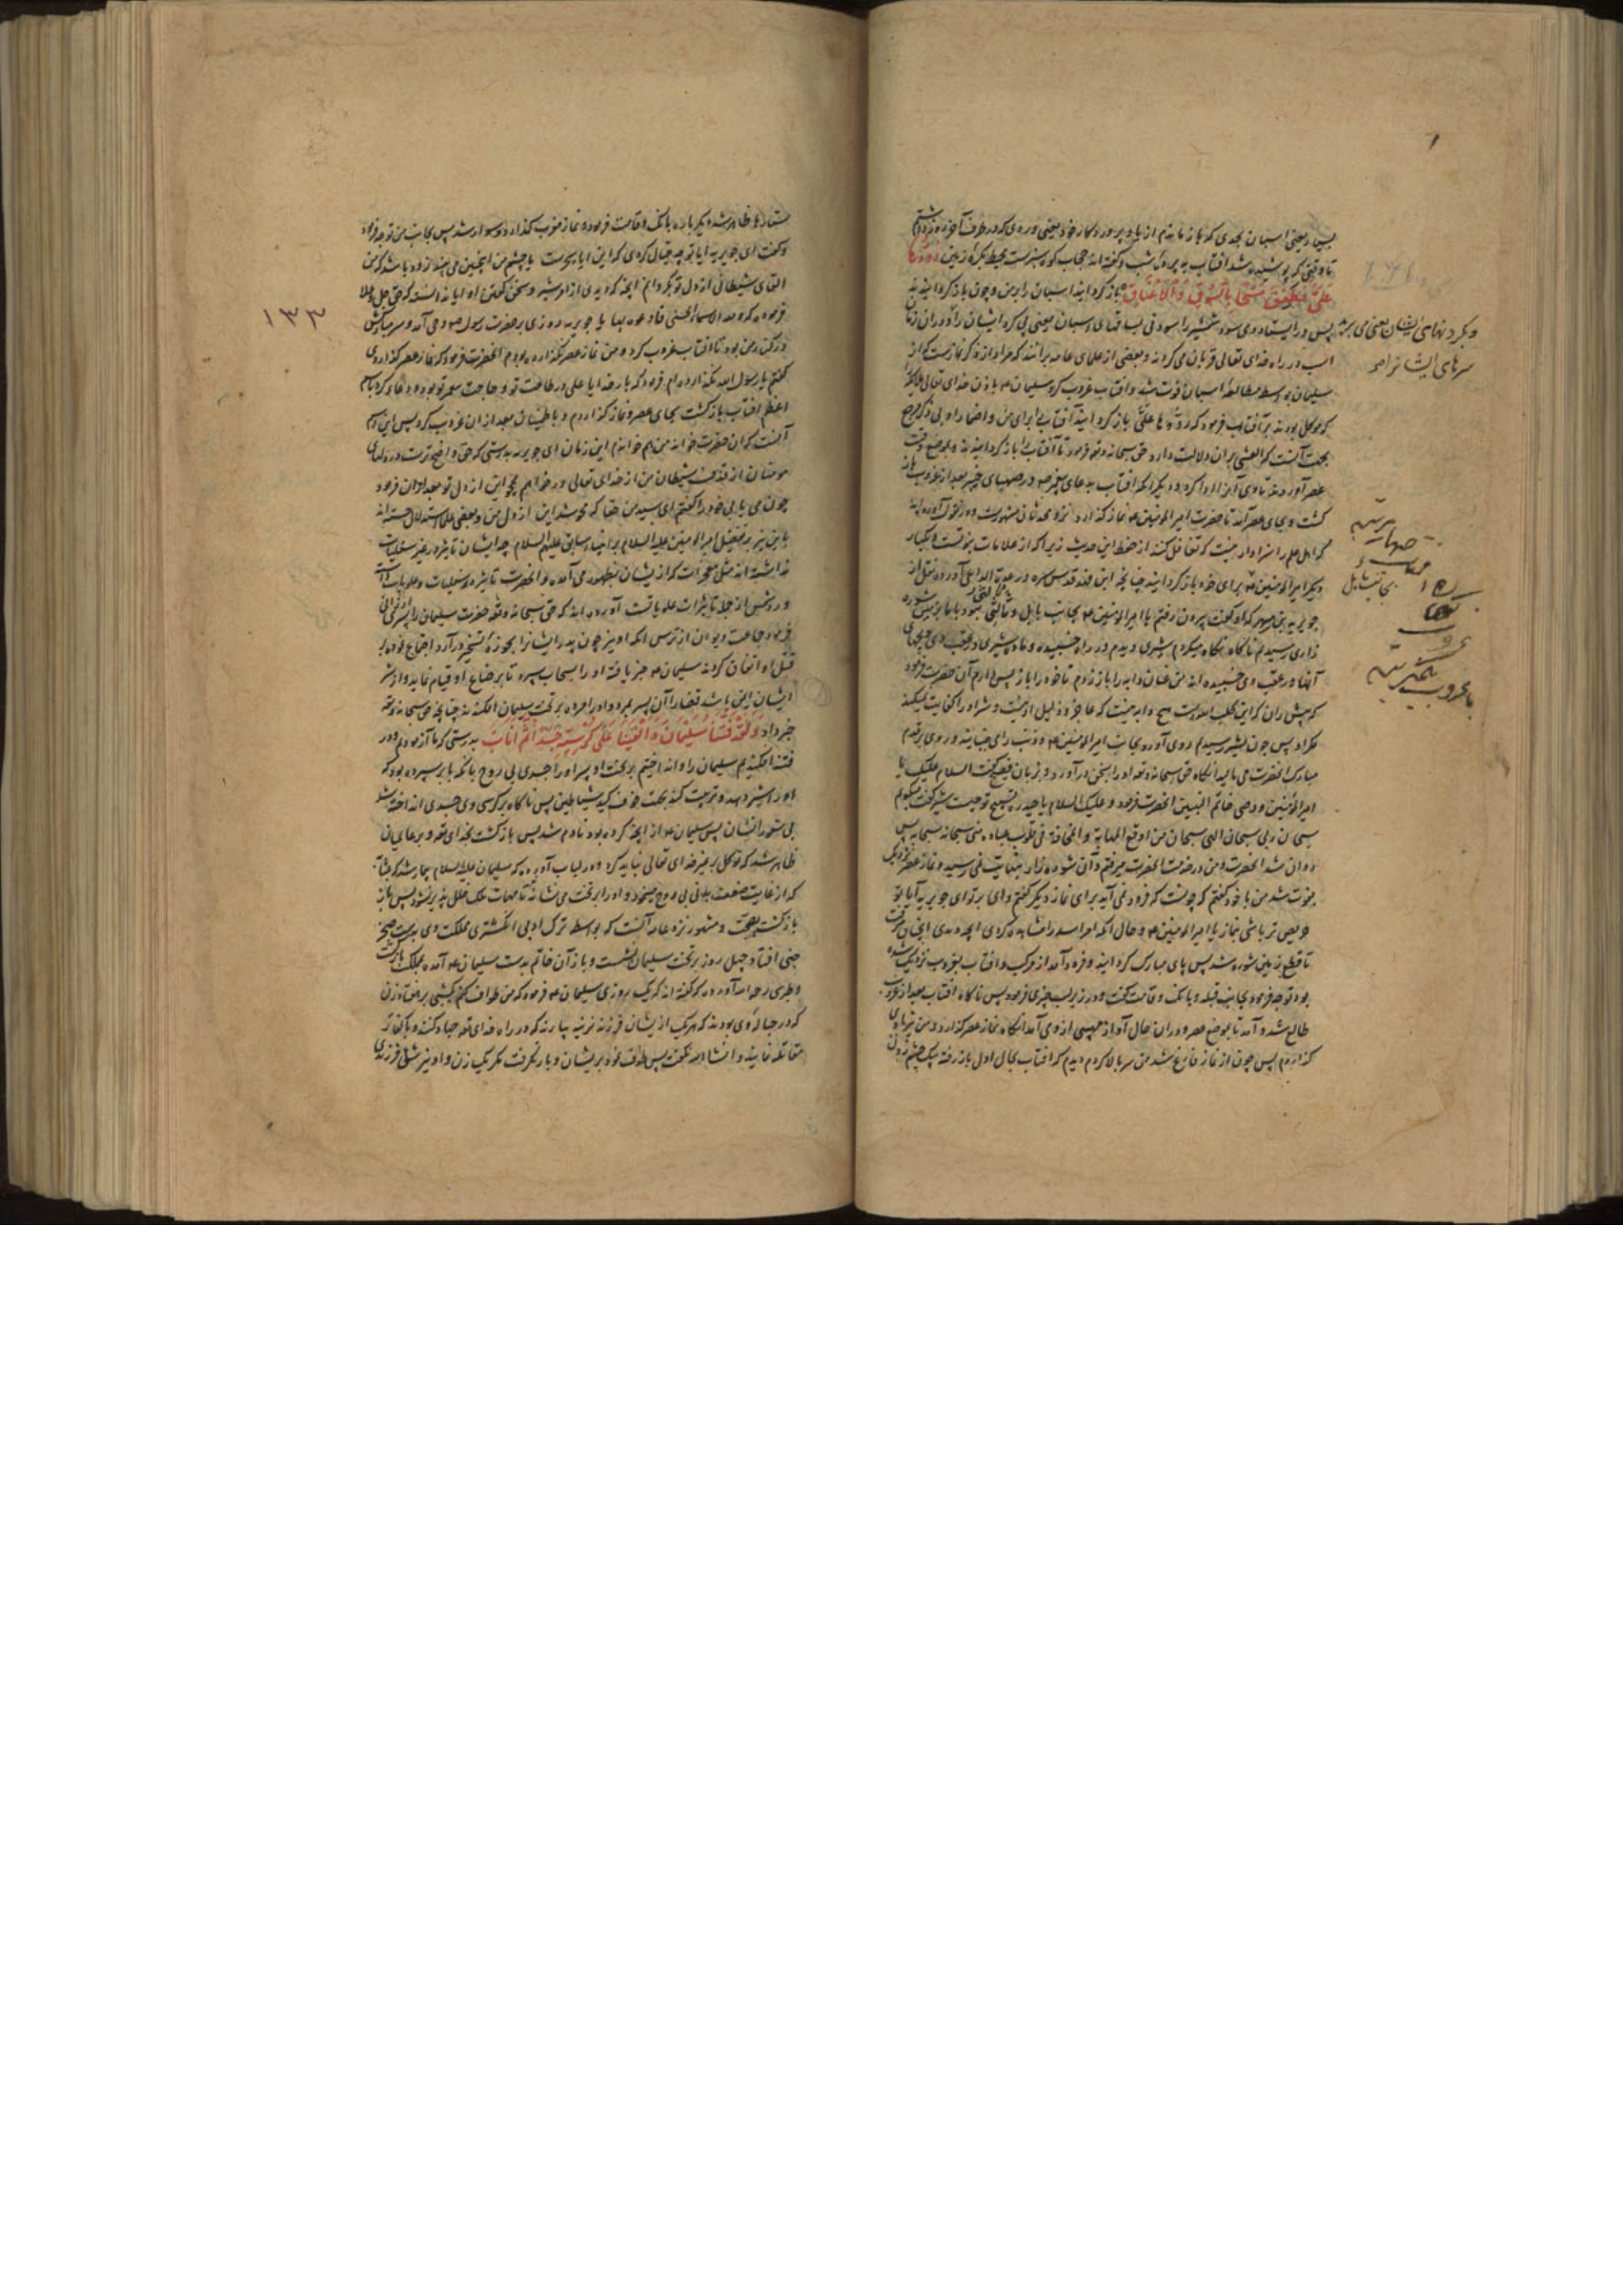 بسیار یعنی اسبان بحدی که باز ماندم از یاد پروردکار خود یعنی وردی که در طرف آخر روز داشتم
تا وقتی که پوشیده شد افتاب به پرده شب و گفته اند حجاب کوه سبزیست محیط بکره زمین ردوها
علی فطفق مسحا بالسوق والاعناق باز کردانید اسبان را بر من و چون باز کردانیدند
پس در ایستاد می سود شمشیر را سودنی بساقهای اسبان یعنی پی کرد ایشان را و در ان زمان
و بکردنهای ایشان یعنی می برید
سرهای ایشانرا
اسب در راه خدای تعالی قربان می کردند و بعضی از علمای عامه برانند که مراد از ذکر نمازست که از
سلیمان بواسطه مطالعه اسبان فوت شد و افتاب غروب کرد سلیمان باذن خدای تعالی ملایکه
که موکل بودند بر آفتاب فرمود که ردوها علی باز کردانید آفتاب برای من
بجهت آنست که العشی بران دلالت دارد حق سبحانه و تعالی فرمود تا آفتاب را باز کردانیدند و بموضع وقت
عصر آوردند تا وی آنرا ادا کرد و دیکر آنکه افتاب بدعای پیغمبر در صهبای خیبر بعد از غروب باز
کشت و بجای عصر آمد تا حضرت امیر المومنین نماز کذارد نزد محدثان مشهورست
که اهل علم را سزاوار نیست که تغافل کنند از حفظ این حدیث زیرا که از علامات نبوتست
دیکر امیر المومنین برای خود باز کردانید چنانچه ابن فهد قدس سره در عدة الداعی آورده نقل از
جویریه بن مسهر که او کفت بیرون رفتم با امیر المومنین بجانب بابل و ثالثی نبود با ما
زاری رسیدیم ناکاه نکاه میکردم شیری دیدم در راه خسبیده و ماده شیری در عقب وی و بچهای
آنها در عقب وی خسبیده اند من عنان دابه را باز زدم تا خود را باز پس دارم آن حضرت فرمود
که پیش ران که این کلب الله است هیچ دابه نیست که
مکر او پس چون بشیر رسیدیم روی آورد بجانب امیر المومنین و ذنب را می جنبانید و روی بر قدم
مبارک آنحضرت می مالید آنکاه حق سبحانه و تعالی او را بسخن درآورد و بزبان فصیح کفت السلام علیک یا
امیر المؤمنین و وصی خاتم النبیین آنحضرت فرمود و علیک السلام یا حیدره تسبیح تو چیست شیر کفت میکویم
سبحان ربی سبحان الهی سبحان من اوقع المهابة و المخافة فی قلوب عباده منی سبحانه سبحانه پس
روان شد آنحضرت و من در خدمت آنحضرت میرفتم و آن شوره زار بنهایت نمی رسید و نماز عصر نزدیک
بفوت شد من با خود کفتم که چونست که فرود نمی آید برای نماز دیکر کفتم وای بر تو ای جویریه آیا تو
حریص تر باشی بنماز یا امیر المومنین و حال آنکه
تا قطع زمین شوره شد پس پای مبارک کردانید و فرود آمد از مرکب و افتاب بغروب نزدیک شده
بود توجه فرمود بجانب قبله و بانک و قامت کفت و در زیر لب چیزی فرمود پس ناکاه افتاب بعد از غروب
طالع شد و آمد تا بموضع عصر و دران حال آواز مهیبی از وی آمد آنکاه نماز عصر کذارد و من نیز با وی
کذاردم پس چون از نماز فارغ شد من سر بالا کردم دیدم که افتاب بحال اول باز رفته بیک چشم زدن
صهبا
بجانب بابل
۱۳۳
ستارها ظاهر شد دیکر باره بانک و قامت فرمود و نماز مغرب کذارد و سوار شد پس بجانب من توجه فرمود
و کفت ای جویریه ایا توهم و خیال کردی که این ایا سحرست یا چشم من اینچنین می بیند
القای شیطانی از دل تو بکردانم آنچه که دیدی از امر شیر و سخن کفتن او ایا ندانسته که حق جل و علا
فرموده که و لله الاسماء الحسنی فادعوه بها یا جویریه روزی بر حضرت رسول وحی آمد و سر مبارکش
در کنار من بود تا افتاب غروب کرد و من نماز عصر نکذارده بودم آنحضرت فرمود که نماز عصر کذاردی
کفتم یا رسول الله نکذارده ام فرمود که بار خدایا علی در طاعت تو و حاجت پیغمبر تو بود و دعا کرد باسم
اعظم افتاب باز کشت بجای عصر و نماز کذاردم و باطمینان بعد از ان غروب کرد پس این اسم
آنست که ان حضرت خواند من هم خواندم این زمان ای جویریه بدرستی که حق واضح ترست در دلهای
مومنان از قذف شیطان من از خدای تعالی درخواهم محو این از دل تو بعد از ان فرمود
چون می یابی خود را کفتم ای سید من حقا که محو شد این از دل من و بعضی علما استدلال جسته اند
باین نیز بر تفضیل امیر المومنین علیه السلام بر انبیاء سابق علیهم السلام چه ایشان تاثیر در غیر سفلیات
نداشته اند مثل معجزات که از ایشان بظهور می آمده و آنحضرت تاثیر در سفلیات و علویات داشت
و رد شمس از جمله تاثیرات علویاتست آورده اند که حق سبحانه و تعالی حضرت سلیمان را پسری ارزانی
فرمود جماعت دیوان از ترس آنکه او نیز چون پدر ایشانرا بحوزه تسخیر درآرد اجتماع نموده بر
قتل او اتفاق کردند سلیمان خبر یافته او را بسحاب سپرد تا برضاع او قیام نماید و از شر
ایشان ایمن باشد قضا را آن پسر بمرد و او را مرده بر تخت سلیمان افکندند چنانچه حق سبحانه و تعالی
خبر داد و لقد فتنا سلیمان و القینا علی کرسیه جسدا ثم اناب بدرستی که ما آزمودیم و در
فتنه افکندیم سلیمان را و انداختیم بر تخت او پسر او را جسدی بی روح بآنکه بابر سپرده بود که
او را شیر دهد و تربیت کند بجهت خوف کید شیاطین پس ناکاه بر کرسی وی جسدی انداخته شد
بی شعور ایشان پس سلیمان از آنچه کرده بود نادم شد پس باز کشت بخدای تعالی و بر عالمیان
ظاهر شد که توکل بر غیر خدای تعالی نباید کرد و در لباب آورده که سلیمان علیه السلام بیمار شد
که از غایت ضعف بدنی بی روح مینمود و او را بر تخت می نشاندند تا مهمات ملک خلل پذیر نشود پس باز
باز کشت بصحت و مشهور نزد عامه آنست که بواسطه ترک ادبی انکشتری مملکت وی بدست صخر
جنی افتاد چهل روز بر تخت سلیمان نشست و باز آن خاتم بدست سلیمان آمده بمملکت باز کشت
و طبرسی رحمه الله آورده که کفته اند که یک روزی سلیمان فرمود که من طواف کنم یکشبی بر هفتاد زن
که در حباله وی بودند که هر یک از ایشان فرزند نرینه بیارند که در راه خدای تعالی جهاد کنند و با کفار
مقاتله نمایند و انشاء الله نکفت پس طواف نمود بر ایشان و بار نکرفت مکر یک زن و او نیز شق فرزندی